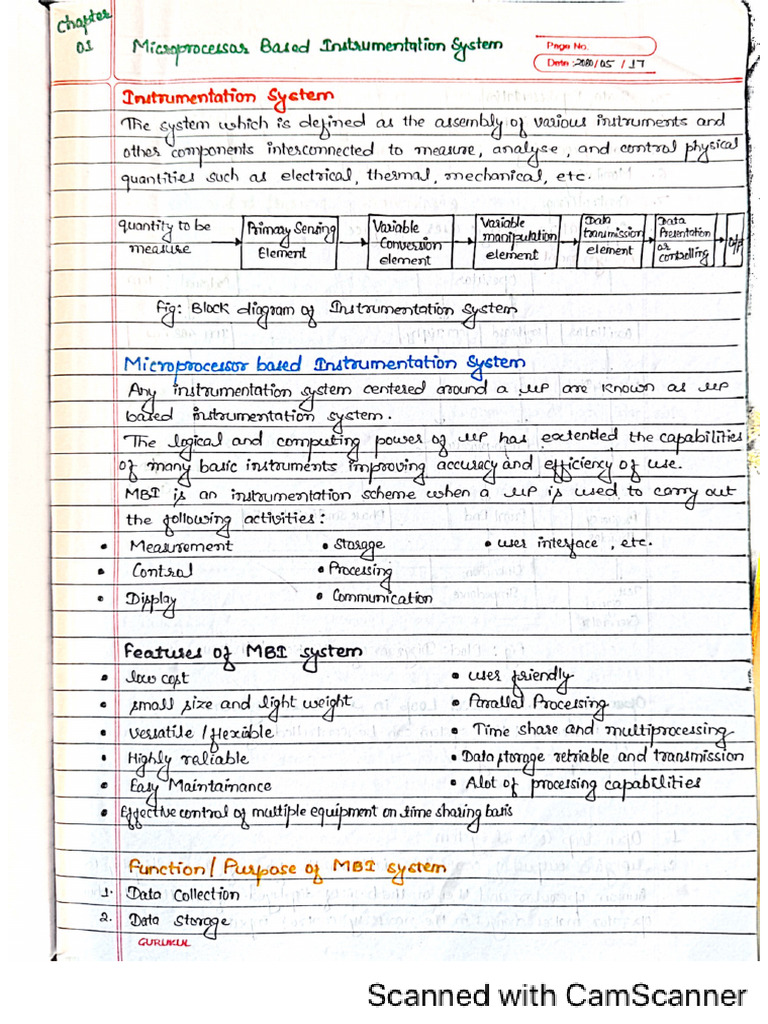 Chapter
01
Microprocessor Based Instrumentation System
Page No.
Date : 2080/05/17
Instrumentation System
The system which is defined as the assembly of various instruments and
other components interconnected to measure, analyse, and control physical
quantities such as electrical, thermal, mechanical, etc.
quantity to be
measure
Primary Sensing
Element
Variable
Conversion
element
Variable
manipulation
element
Data
transmission
element
Data
Presentation
or
controlling
O/P
Fig: Block diagram of Instrumentation System
Microprocessor based Instrumentation System
Any instrumentation system centered around a μP are known as μP
based instrumentation system.
The logical and computing power of μP has extended the capabilities
of many basic instruments improving accuracy and efficiency of use.
MBI is an instrumentation scheme when a μP is used to carry out
the following activities :
• Measurement • Storage • user interface, etc.
• Control • Processing
• Display • Communication
Features of MBI system
• low cost • user friendly
• small size and light weight • Parallal Processing
• Versatile / flexible • Time share and multiprocessing
• Highly reliable • Data storage retriable and transmission
• Easy Maintainance • Alot of processing capabilities
• Effective control of multiple equipment on time sharing basis
Function / Purpose of MBI system
1. Data Collection
2. Data Storage
GURUKUL
Scanned with CamScanner